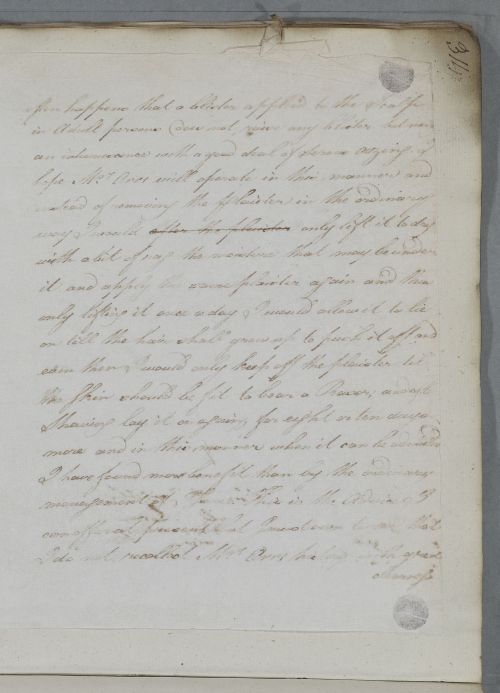 happens that a blister applied to the Scalp
in Adult persons does not raise any blister but
an with a good deal of Serum oozing
hope Mrs. will operate in this manner and
instead of removing the plaister in the ordinary
way I would after the plaister only lift it to dry
with a bit of rag the moisture that may be under
it and apply the same plaister again and then
only lifting it once a day I would allow it to lie
on till the hair shall grow up to push it off and
even then I would only keep off the plaister till
the Skin should be fit to bear a Razor, and
Shaving lay it on again, for eight or ten days
more and in this manner when it can be
I have found more benefit than by the ordinary
management This is the Advice I
can offer at present but I must own to you that
I do not recollect Mrs. with great
311